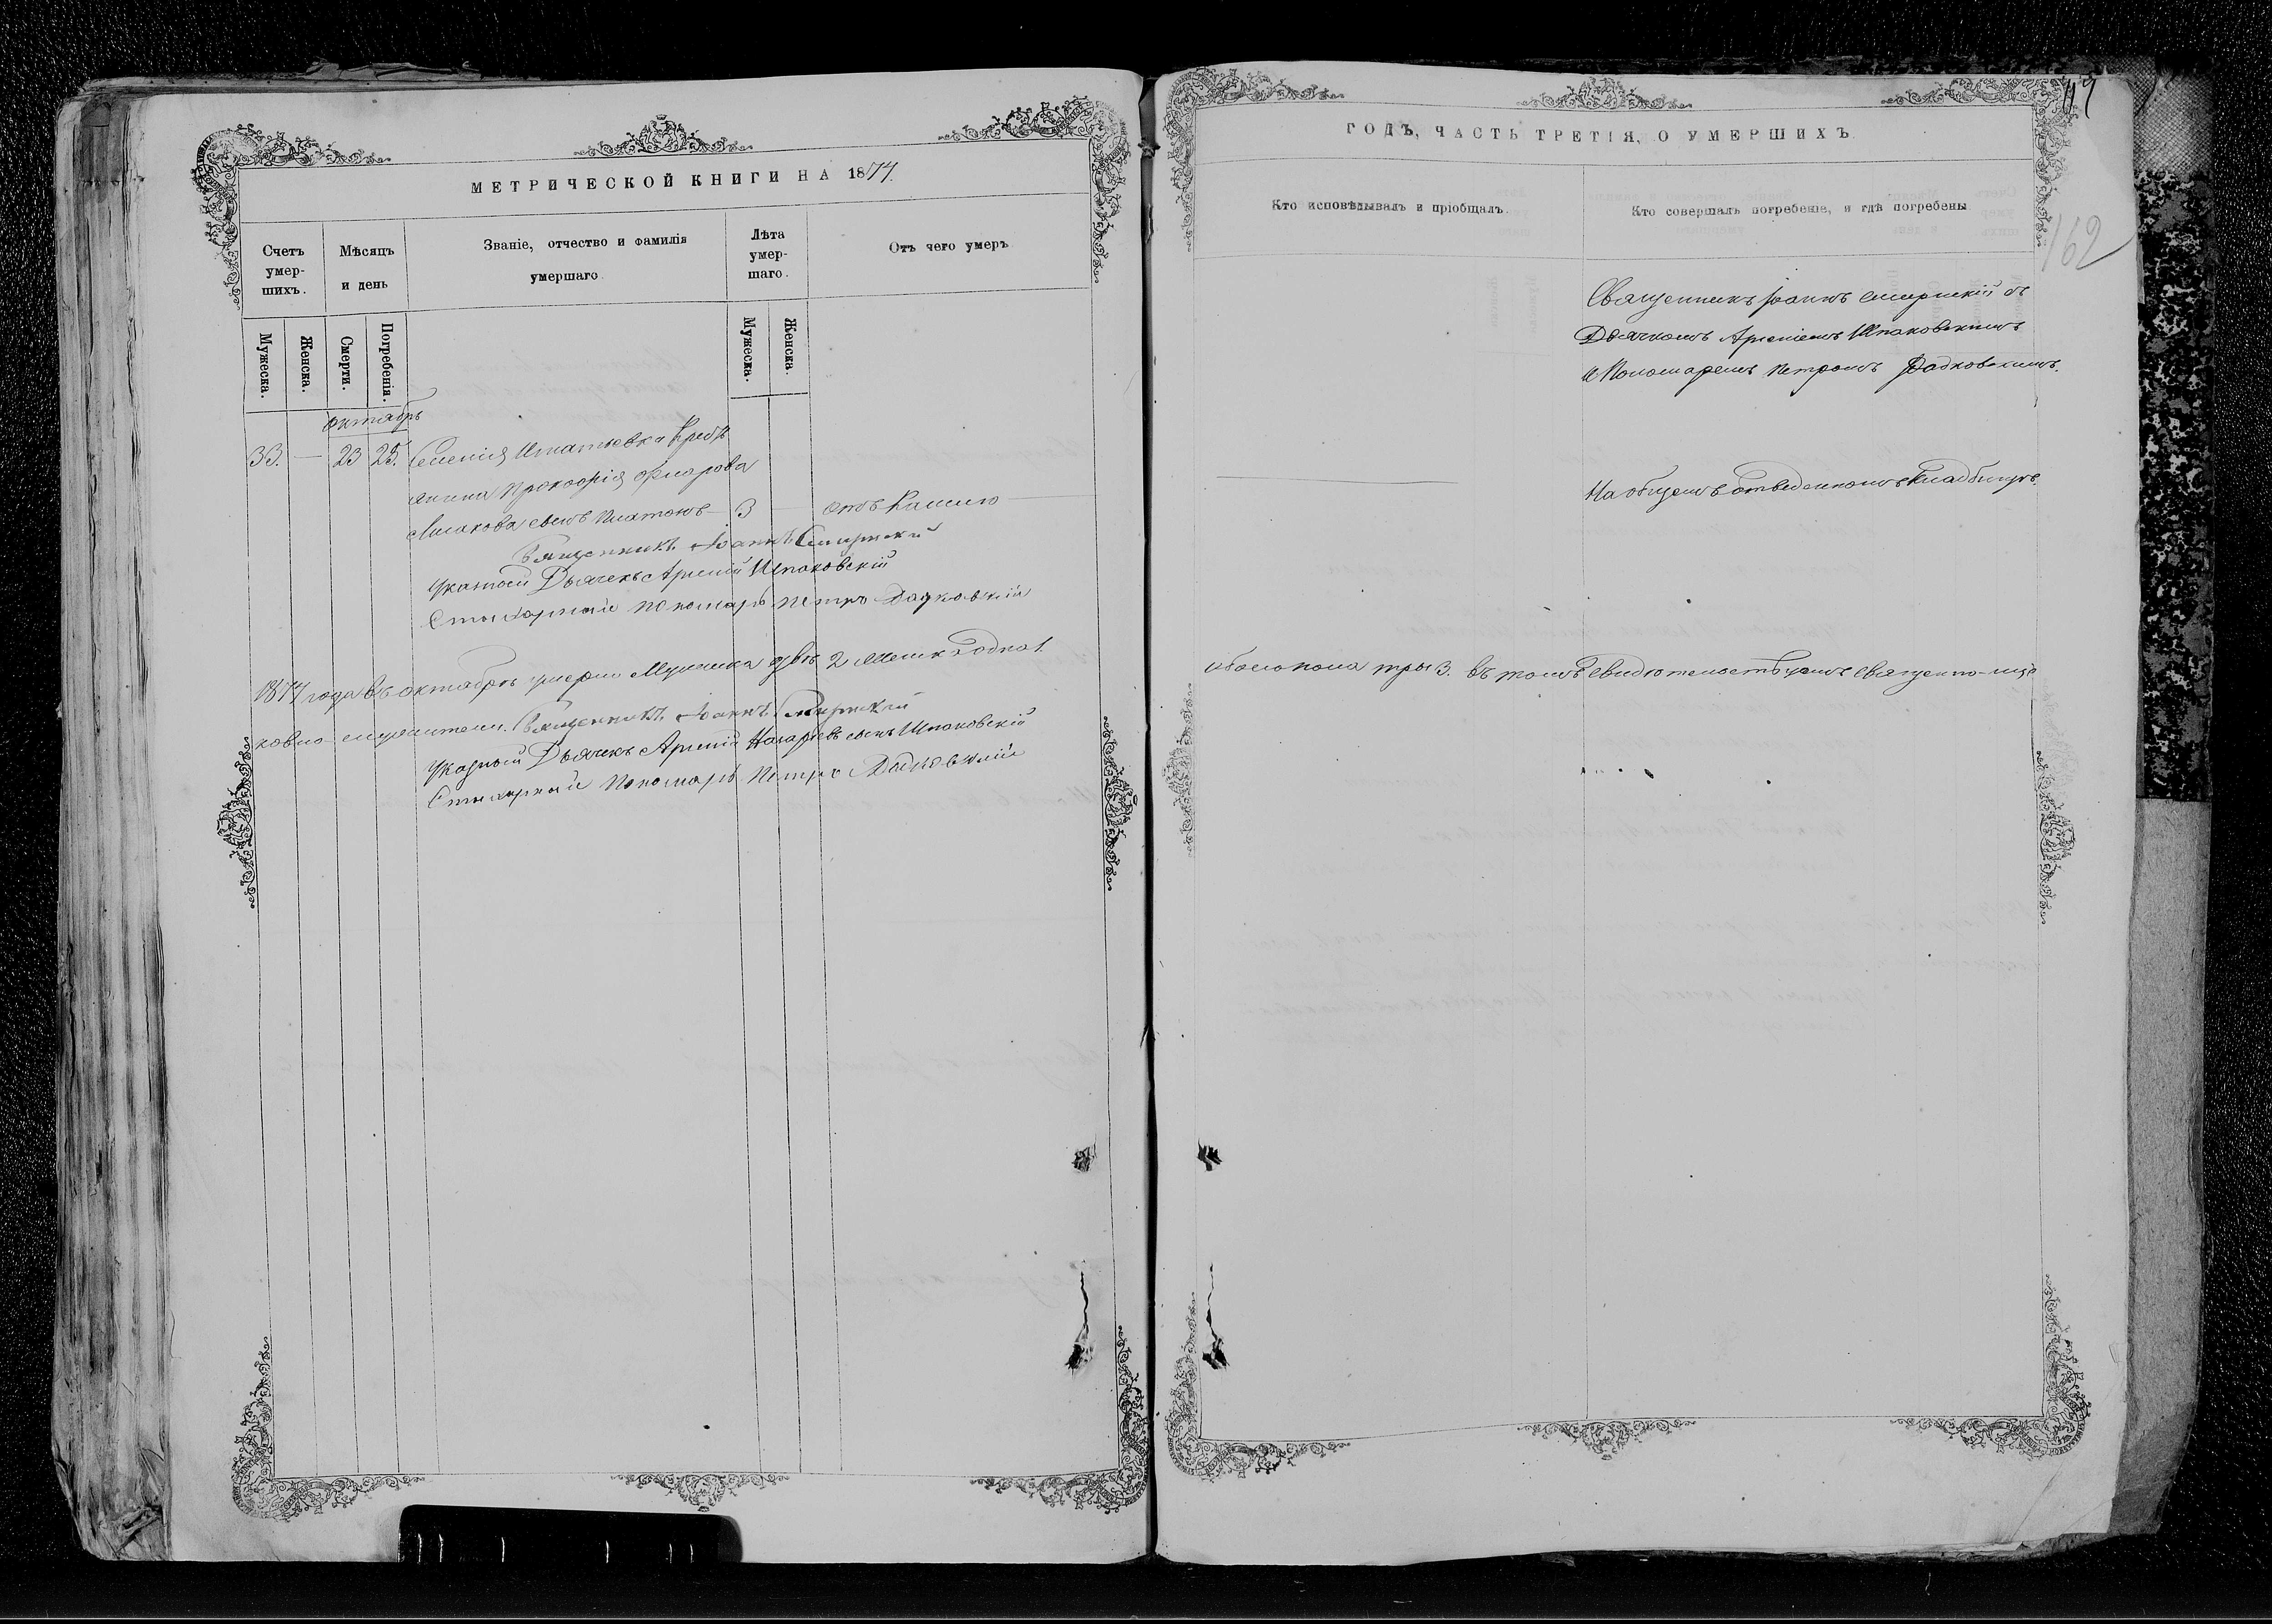 МЕТРИЧЕСКОЙ КНИГИ НА 1877.
Счетъ умер-шихъ.
Мѣсяцъ и день
Званіе, отчество и фамилія умершаго.
Лѣта умер-шаго.
Отъ чего умеръ.
Мужеска.
Женска.
Смерти.
Погребенія.
Мужеска.
Женска.
октябрь
33. — 23 25. Селенія Игнатьевка
Прокофія
сынъ Платонъ — 3 — отъ Кашлю
Священникъ Іоаннъ
Указной Дьячекъ Арсеній Шпаковскій
Стихарный Пономарь Петръ
1877 года въ октябрѣ умерли Мужеска два 2 Женск одна 1.
служители. Священникъ Іоаннъ
Указной Дьячекъ Арсеній Назаріевъ сынъ Шпаковскій
Стихарный Пономарь Петръ
ГОДЪ, ЧАСТЬ ТРЕТІЯ, О УМЕРШИХЪ.
Кто исповѣдывалъ и пріобщалъ.
Кто совершалъ погребеніе, и гдѣ погребены.
162
Священникъ Іоаннъ съ
Дьячкомъ Арсеніемъ Шпаковскимъ
и Пономаремъ Петромъ
На общемъ отведенномъ кладбищѣ.
обоего пола три 3. въ томъ свидѣтельствуемъ священно-цер